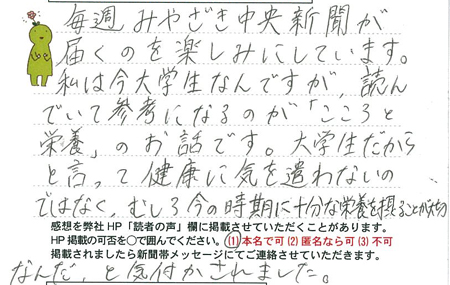 毎週みやざき中央新聞が
届くのを楽しみにしています。
私は今大学生なんですが、読ん
でいて参考になるのが「こころと
栄養」のお話です。大学生だから
と言って健康に気を遣わないの
ではなく、むしろ今の時期に十分な栄養を摂ることが大切
感想を弊社HP「読者の声」欄に掲載させていただくことがあります。
HP掲載の可否を〇で囲んでください。(1)本名で可 (2)匿名なら可 (3)不可
掲載されましたら新聞帯メッセージにてご連絡させていただきます。
なんだ、と気付かされました。